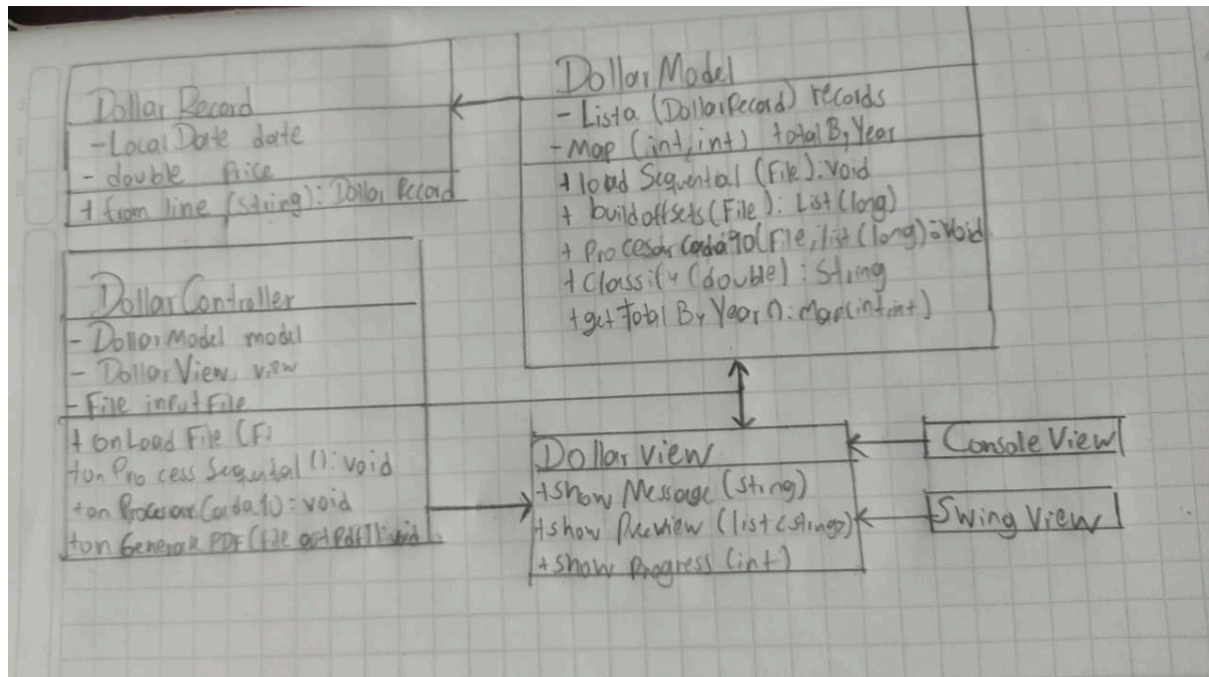 Dollar Record
- Local Date date
- double Price
+ from line (string): Dollar Record
Dollar Model
- Lista (DollarRecord) records
- Map (int, int) total By Year
+ load Sequential (File): Void
+ build offsets (File): List (long)
+ Procesar Cada 10 (File, list (long): Void
+ Classify (double): String
+ get Total By Year (): Map (int, int)
Dollar Controller
- Dollar Model model
- Dollar View, view
- File input File
+ on Load File (F:
+ on Process Sequntal (): void
+ on Procesar Cada 10): void
+ on Generate PDF (file out Pdf): void
Dollar View
+ Show Message (String)
+ show Preview (list <string>)
+ Show Progress (int)
Console View
Swing View